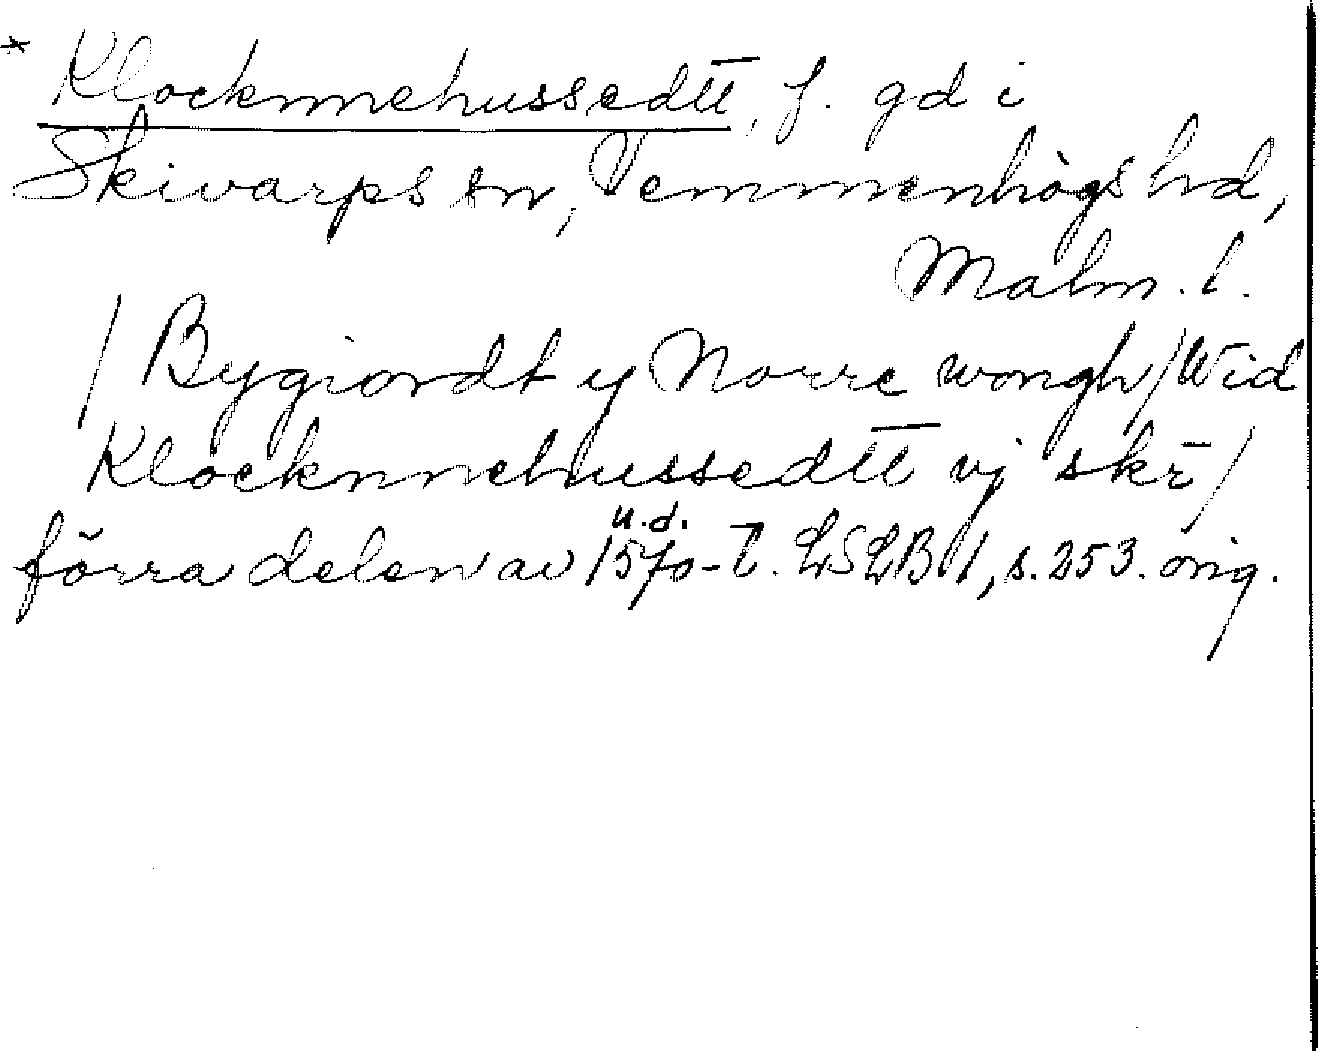 * Klocknnehussedtt, f. gd i
Skivarps sn, Vemmenhögs hd,
Malm. l.
/ Bygiordt y Norre wongh / Wid
Klocknnehussedtt vj skr̄ /
förra delen av 1570-t. LSLB 1, s. 253. orig.
u.d.